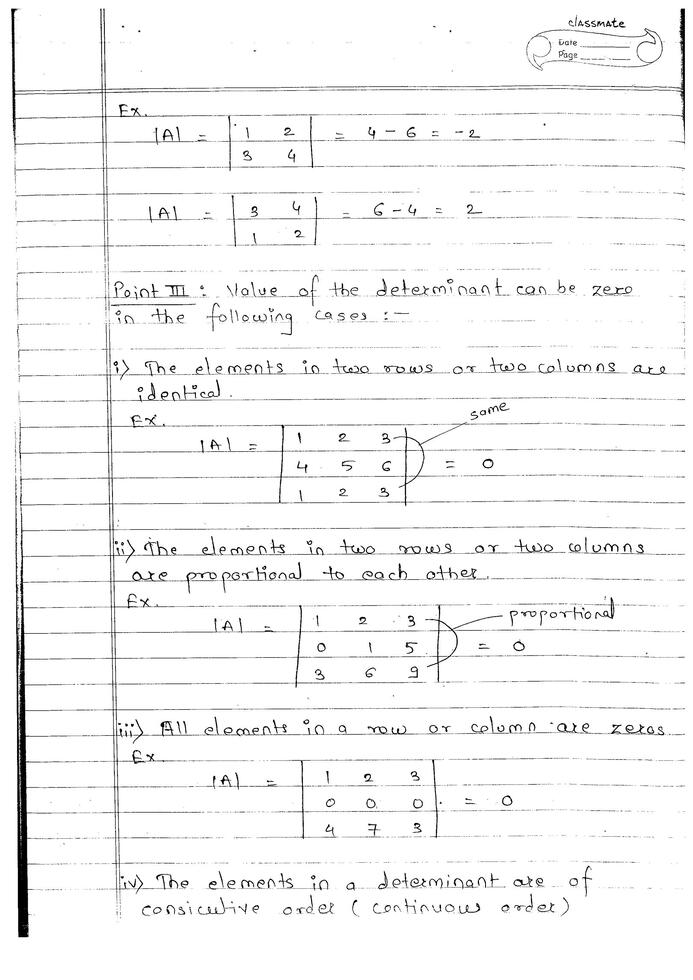 classmate
Date
Page
Ex.
|A| = | 1 2 | = 4 - 6 = -2
3 4
|A| = | 3 4 | = 6 - 4 = 2
1 2
Point III : Value of the determinant can be zero
in the following cases :-
i) The elements in two rows or two columns are
identical.
Ex.
same
|A| = 1 2 3
4 5 6 = 0
1 2 3
ii) The elements in two rows or two columns
are proportional to each other.
Ex.
proportional
|A| = 1 2 3
0 1 5 = 0
3 6 9
iii) All elements in a row or column are zeros
Ex
|A| = 1 2 3
0 0 0 = 0
4 7 3
iv) The elements in a determinant are of
consicutive order ( continuous order )